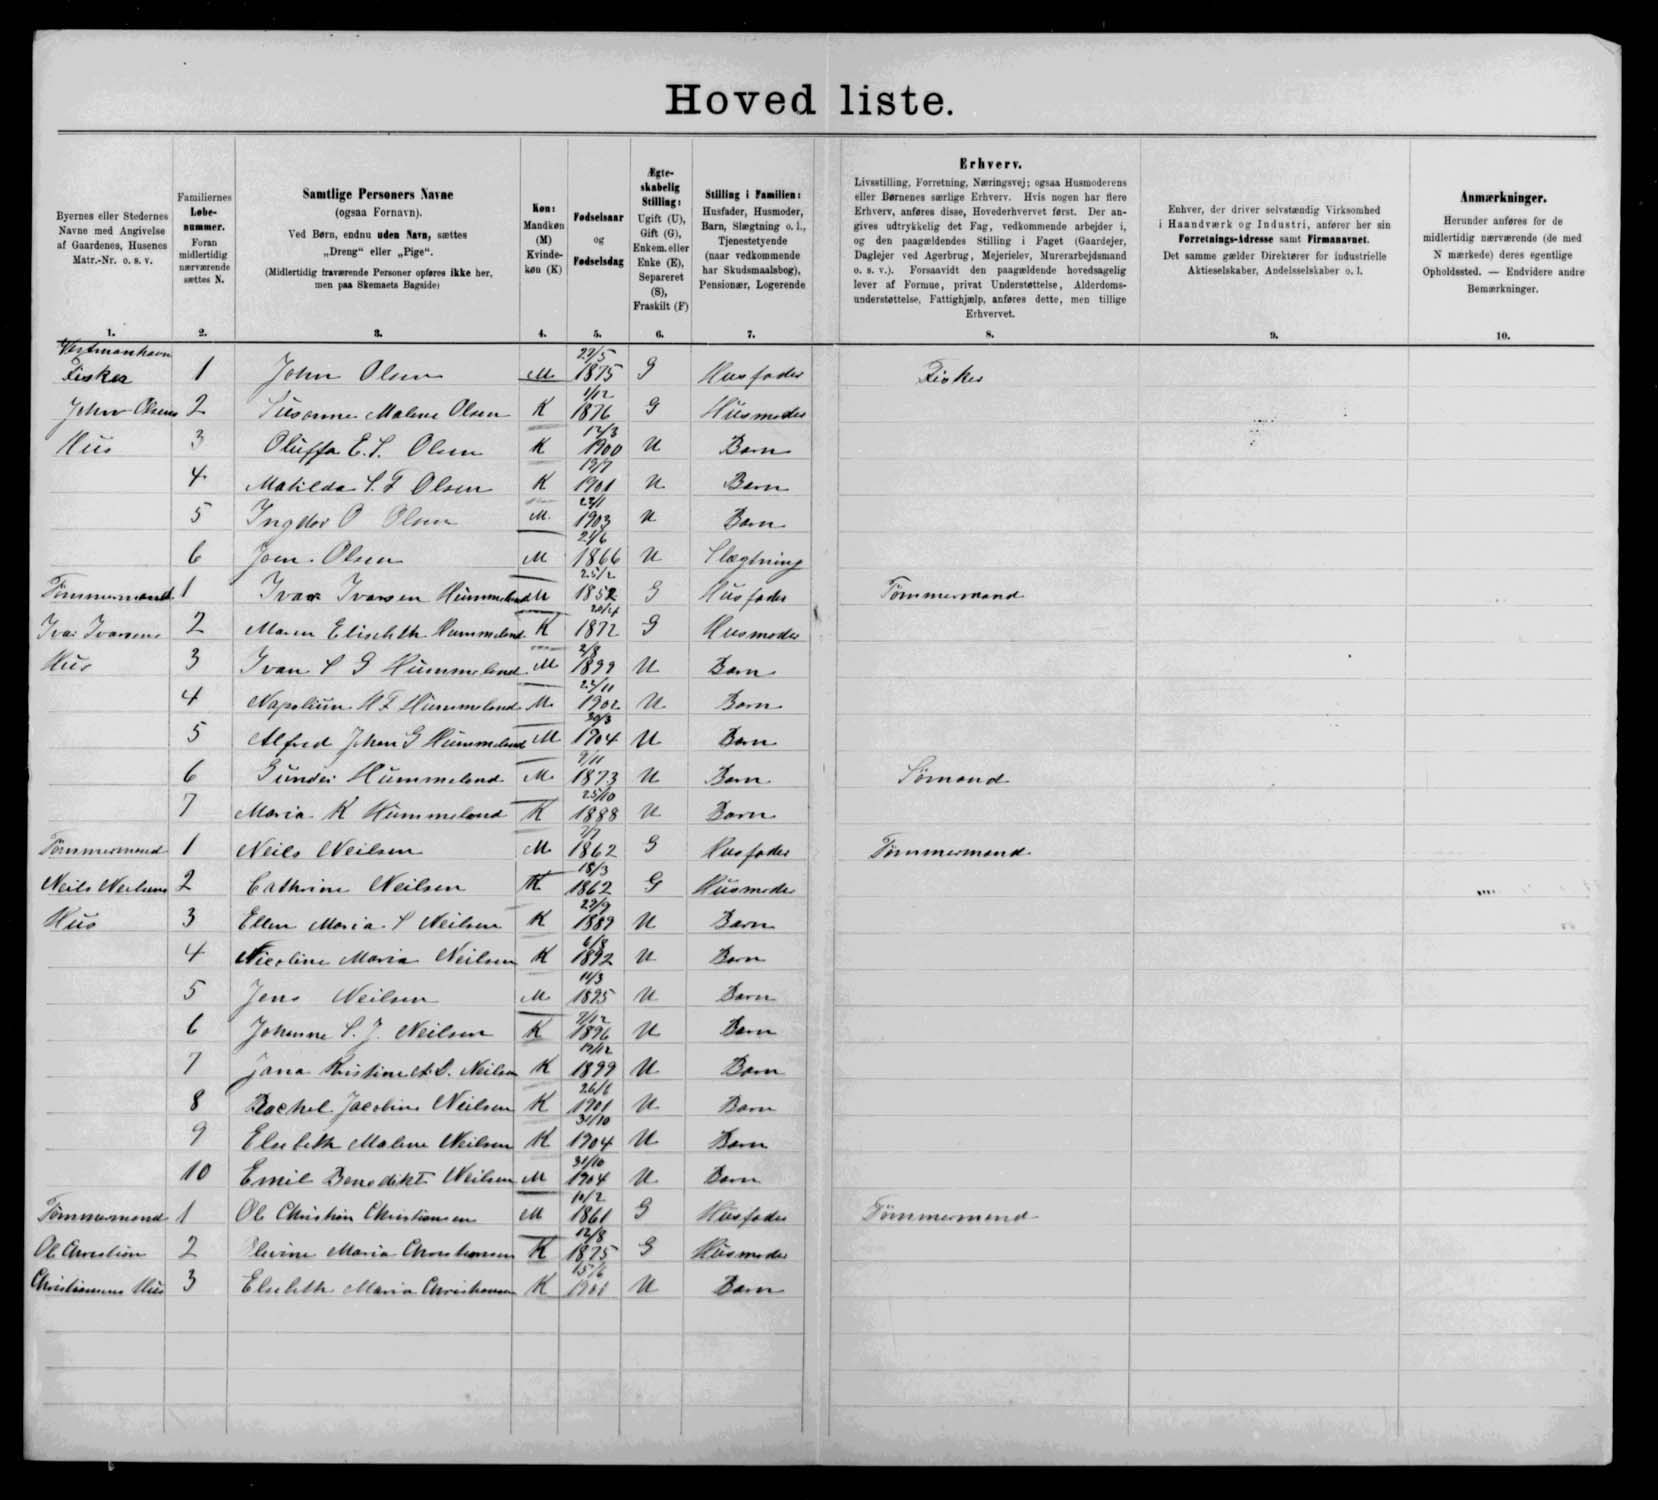 Hovedliste.
Byernes eller Stedernes Navne med Angivelse af Gaardenes, Husenes Matr.-Nr. o. s. v.
Familiernes Løbe-nummer. Foran midlertidig nærværende sættes N.
Samtlige Personers Navne
(ogsaa Fornavn).
Ved Børn, endnu uden Navn, sættes „Dreng“ eller „Pige“.
(Midlertidig fraværende Personer opføres ikke her, men paa Skemaets Bagside)
Køn: Mandkøn (M) Kvinde-køn (K)
Fødselsaar og Fødselsdag
Ægte-skabelig Stilling: Ugift (U), Gift (G), Enkem. eller Enke (E), Separeret (S), Fraskilt (F)
Stilling i Familien: Husfader, Husmoder, Barn, Slægtning o. l., Tjenestetyende (naar vedkommende har Skudsmaalsbog), Pensionær, Logerende
Erhverv.
Livsstilling, Forretning, Næringsvej; ogsaa Husmoderens eller Børnenes særlige Erhverv. Hvis nogen har flere Erhverv, anføres disse, Hovederhvervet først. Der angives udtrykkelig det Fag, vedkommende arbejder i, og den paagældendes Stilling i Faget (Gaardejer, Daglejer ved Agerbrug, Mejerielev, Murerarbejdsmand o. s. v.). Forsaavidt den paagældende hovedsagelig lever af Formue, privat Understøttelse, Alderdomsunderstøttelse, Fattighjælp, anføres dette, men tillige Erhvervet.
Enhver, der driver selvstændig Virksomhed i Haandværk og Industri, anfører her sin Forretnings-Adresse samt Firmanavnet. Det samme gælder Direktører for industrielle Aktieselskaber, Andelsselskaber o. l.
Anmærkninger.
Herunder anføres for de midlertidig nærværende (de med N mærkede) deres egentlige Opholdssted. — Endvidere andre Bemærkninger.
1. 2. 3. 4. 5. 6. 7. 8. 9. 10.
Vestmanhavn
Fisker 1 John Olsen M 1875 G Husfader Fisker
John Olsens 2 Susanne Malene Olsen K 1/12 1876 G Husmoder
Hus 3 Oluffa E. S. Olsen K 12/3 1900 U Barn
4 Matilda S. F Olsen K 1901 U Barn
5 O Olsen M 1903 U Barn
6 Joen Olsen M 1866 U Slægtning
Tømmermand 1 Ivar Ivarsen Hummeland M 25/2 1852 G Husfader Tømmermand
Ivar Ivarsens 2 Maren Elisebeth Hummeland K 1872 G Husmoder
Hus 3 Ivan S G Hummeland M 2/8 1899 U Barn
4 Napolium H F Hummeland M 1902 U Barn
5 Alfred Johan G Hummeland M 30/3 1904 U Barn
6 Hummeland M 9/11 1873 U Barn Sømand
7 Maria K Hummeland K 25/10 1888 U Barn
Tømmermand 1 Neils Neilsen M 1862 G Husfader Tømmermand
Neils Neilsens 2 Cathrine Neilsen K 18/3 1862 G Husmoder
Hus 3 Ellen Maria S Neilsen K 1889 U Barn
4 Nicoline Maria Neilsen K 6/8 1892 U Barn
5 Jens Neilsen M 11/3 1895 U Barn
6 Johanne S. J. Neilsen K 1896 U Barn
7 Jana Kristine A. S. Neilsen K 19/12 1899 U Barn
8 Rachel Jacobine Neilsen K 26/6 1901 U Barn
9 Elsebeth Malene Neilsen K 31/10 1904 U Barn
10 Emil Benedikt Neilsen M 31/10 1904 U Barn
Tømmermand 1 Ole Christian Christiansen M 1861 G Husfader Tømmermand
Ole Christian 2 Maria Christiansen K 12/8 1875 G Husmoder
Christiansens Hus 3 Elsebeth Maria Christiansen K 15/6 1901 U Barn